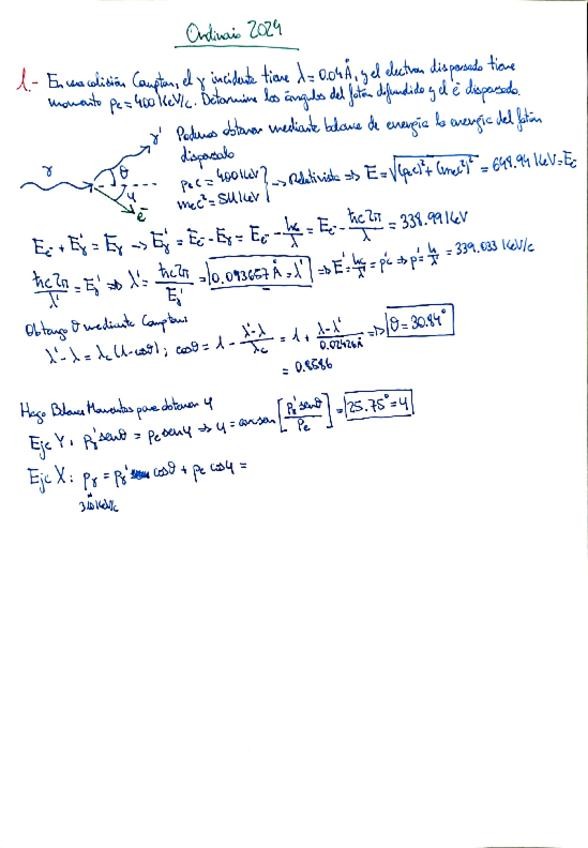 Ordinario 2024
1.- En una colisión Compton, el γ incidente tiene λ = 0.04 Å, y el electron dispersado tiene
momento pe = 400 KeV/c. Determine los ángulos del fotón difundido y el e⁻ dispersado.
γ γ' θ φ e⁻
Podemos obtener mediante balance de energía la energía del fotón
dispersado
pec = 400 KeV
mec² = 511 KeV
→ Relativista ⇒ E = √((pec)² + (mec²)²) = 648.94 KeV = Ee
Ee- + Eγ' = Eγ → Eγ' = Ee- - Eγ = Ee- - hc/λ = Ee- - ħc2π/λ = 338.99 KeV
ħc2π/λ' = Eγ' ⇒ λ' = ħc2π/Eγ' = 0.093657 Å = λ' ⇒ E' = hc/λ' = p'c ⇒ p' = h/λ' = 339.033 KeV/c
Obtengo θ mediante Compton:
λ' - λ = λc (1 - cosθ) ; cosθ = 1 - (λ' - λ)/λc = 1 + (λ - λ')/0.02426Å ⇒ θ = 30.84°
= 0.8586
Hago Balance Momentos para obtener φ
Eje Y: pγ' senθ = pe senφ ⇒ φ = arcsen [pγ' senθ / pe] = 25.75° = φ
Eje X: pγ = pγ' cosθ + pe cosφ =
310 KeV/c